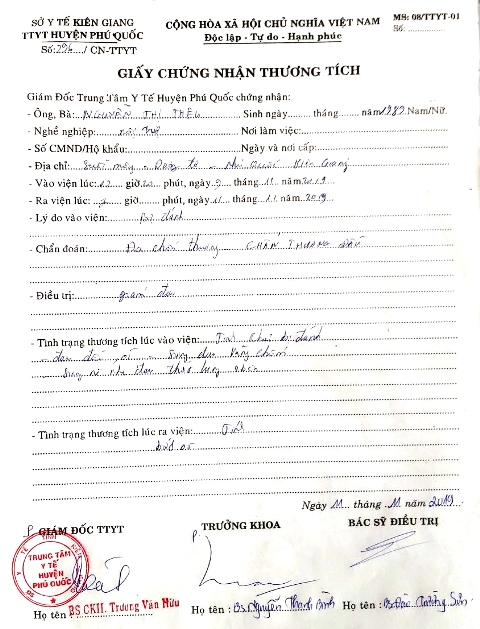 SỞ Y TẾ KIÊN GIANG
TTYT HUYỆN PHÚ QUỐC
Số: 296 / CN-TTYT
CỘNG HÒA XÃ HỘI CHỦ NGHĨA VIỆT NAM
Độc lập - Tự do - Hạnh phúc
MS: 08/TTYT-01
Số:
GIẤY CHỨNG NHẬN THƯƠNG TÍCH
Giám Đốc Trung Tâm Y Tế Huyện Phú Quốc chứng nhận:
- Ông, Bà: NGUYỄN THỊ THÊU Sinh ngày tháng năm 1989 Nam/Nữ.
- Nghề nghiệp: nội trợ Nơi làm việc:
- Số CMND/Hộ khẩu: Ngày và nơi cấp:
- Địa chỉ: Suối mây - Dương tơ - Phú Quốc - Kiên Giang
- Vào viện lúc: giờ phút, ngày 9 tháng 11 năm 2019
- Ra viện lúc: giờ phút, ngày 11 tháng 11 năm 2019
- Lý do vào viện: Bị đánh
- Chẩn đoán: Đa chấn thương CHẤN THƯƠNG ĐẦU
- Điều trị: giảm đau
- Tình trạng thương tích lúc vào viện: Tỉnh Khai bị đánh
- đau đầu
- Tình trạng thương tích lúc ra viện: Tỉnh
Ngày 11 tháng 11 năm 2019
GIÁM ĐỐC TTYT
TRƯỞNG KHOA
BÁC SỸ ĐIỀU TRỊ
TRUNG TÂM
Y TẾ
HUYỆN
PHÚ QUỐC
Họ tên: BS.CKII. Trương Văn Hữu
Họ tên: Bs. Nguyễn Thanh Bình
Họ tên: Bs Đào Trường Sơn